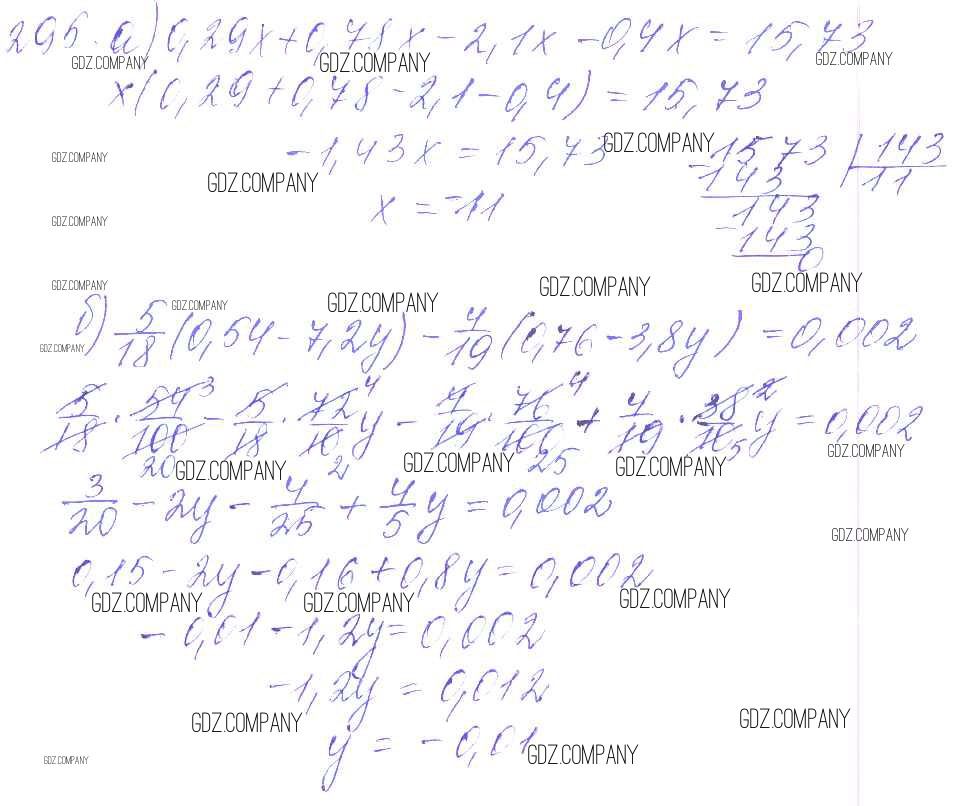 295. а) 0,29x + 0,78x - 2,1x - 0,4x = 15,73
GDZ.COMPANY GDZ.COMPANY GDZ.COMPANY
x(0,29 + 0,78 - 2,1 - 0,4) = 15,73
-1,43x = 15,73 GDZ.COMPANY -1573 | 143
GDZ.COMPANY GDZ.COMPANY 143 11
x = -11 143
GDZ.COMPANY -143
0
GDZ.COMPANY GDZ.COMPANY GDZ.COMPANY GDZ.COMPANY GDZ.COMPANY
б) 5/18 (0,54 - 7,2y) - 4/19 (0,76 - 3,8y) = 0,002
GDZ.COMPANY
5/18 · 54 3/100 20 - 5/18 · 72 4/10 2 y - 4/19 · 76 4/100 25 + 4/19 · 38 2/10 5 y = 0,002
GDZ.COMPANY GDZ.COMPANY GDZ.COMPANY GDZ.COMPANY
3/20 - 2y - 4/25 + 4/5 y = 0,002
GDZ.COMPANY
0,15 - 2y - 0,16 + 0,8y = 0,002
GDZ.COMPANY GDZ.COMPANY GDZ.COMPANY
-0,01 - 1,2y = 0,002
-1,2y = 0,012
GDZ.COMPANY GDZ.COMPANY
y = -0,01
GDZ.COMPANY GDZ.COMPANY